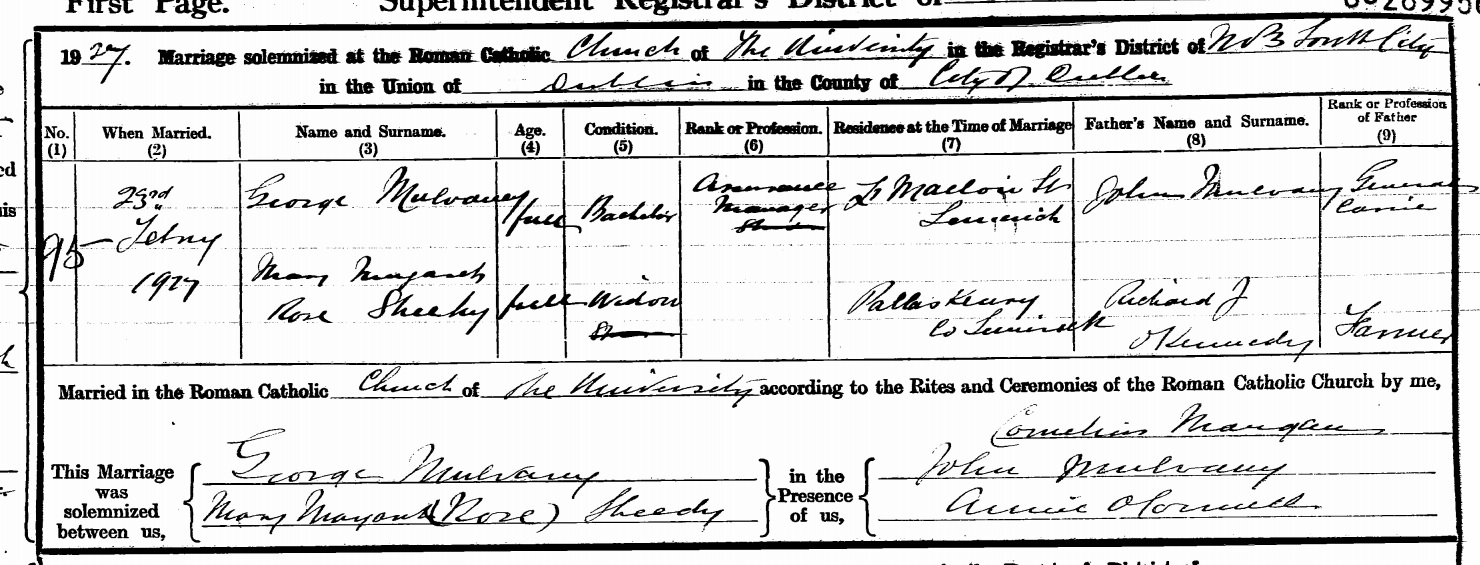 First Page. Superintendent Registrar's District of
1927. Marriage solemnized at the Roman Catholic Church of The University in the Registrar's District of No 3 South City
in the Union of Dublin in the County of City of Dublin
No. (1) When Married. (2) Name and Surname. (3) Age. (4) Condition. (5) Rank or Profession. (6) Residence at the Time of Marriage (7) Father's Name and Surname. (8) Rank or Profession of Father (9)
95 23rd Febry 1927 George Mulvaney full Bachelor Assurance Manager St Limerick John Mulvany General
Mary Margaret Rose Sheehy full Widow Pallaskenry Co Limerick Richard J O'Kennedy Farmer
Married in the Roman Catholic Church of The University according to the Rites and Ceremonies of the Roman Catholic Church by me,
Cornelius Mangan
This Marriage was solemnized between us, George Mulvany in the Presence of us, John Mulvany
Mary Margaret (Rose) Sheedy Annie O'Connell